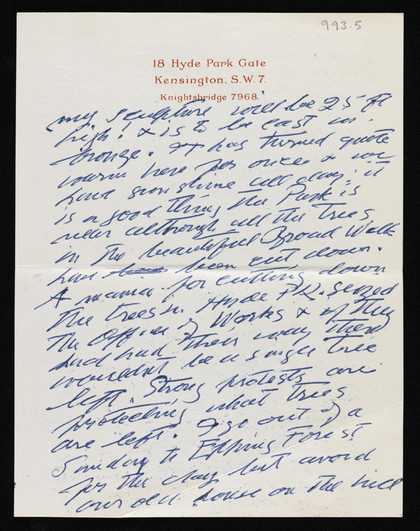 993.5
18 Hyde Park Gate
Kensington, S.W.7.
Knightsbridge 7968.
my sculpture will be 25 ft
high! & is to be cast in
bronze. It has turned quite
warm here for once & we
had sunshine all day; it
is a good thing the Park is
near although all the trees
in the beautiful Broad Walk
had been cut down.
A mania for cutting down
the trees in Hyde Pk. seized
the Office of Works & if they
had had their way there
wouldn't be a single tree
left. Strong protests are
protecting what trees
are left. I go out of a
Sunday to Epping Forest
for the day but avoid
our old house on the hill